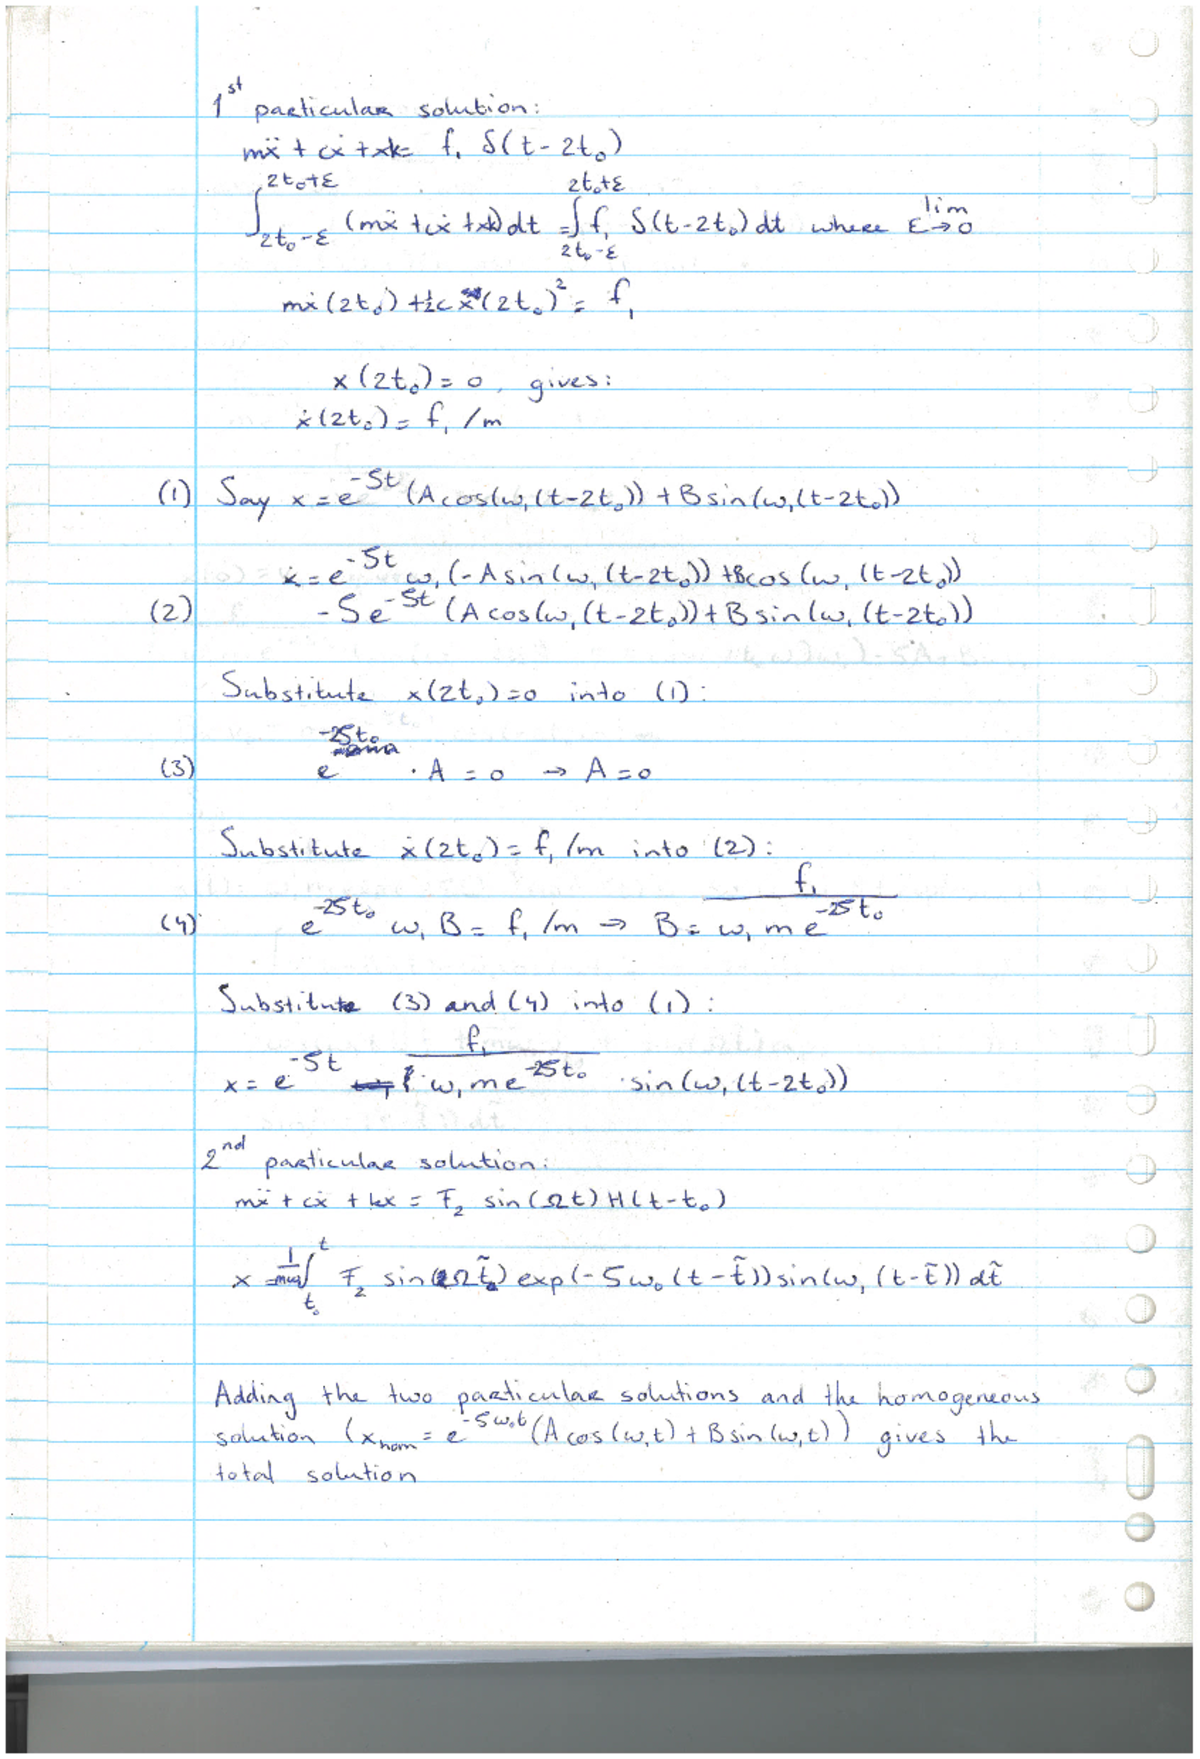 1st particular solution:
mẍ + cẋ + xk = f₁ δ(t - 2t₀)
∫_{2t₀-ε}^{2t₀+ε} (mẍ + cẋ + xk) dt = ∫_{2t₀-ε}^{2t₀+ε} f₁ δ(t-2t₀) dt where lim ε→0
mẋ(2t₀) + ½c x(2t₀)² = f₁
x(2t₀) = 0, gives:
ẋ(2t₀) = f₁/m
(1) Say x = e^{-ζt} (A cos(ω₁(t-2t₀)) + B sin(ω₁(t-2t₀))
ẋ = e^{-ζt} ω₁ (-A sin(ω₁(t-2t₀)) + B cos(ω₁(t-2t₀))
(2) -ζe^{-ζt} (A cos(ω₁(t-2t₀)) + B sin(ω₁(t-2t₀))
Substitute x(2t₀)=0 into (1):
(3) e^{-2ζt₀} · A = 0 → A = 0
Substitute ẋ(2t₀) = f₁/m into (2):
(4) e^{-2ζt₀} ω₁ B = f₁/m ⇒ B = f₁ / (ω₁ m e^{-2ζt₀})
Substitute (3) and (4) into (1):
x = e^{-ζt} f₁ / (ω₁ m e^{-2ζt₀}) · sin(ω₁(t-2t₀))
2nd particular solution:
mẍ + cẋ + kx = F₂ sin(Ωt) H(t-t₀)
x = 1/(mω₁) ∫_{t₀}^{t} F₂ sin(Ωt̃) exp(-ζω₀(t-t̃)) sin(ω₁(t-t̃)) dt̃
Adding the two particular solutions and the homogeneous
solution (x_hom = e^{-ζω₀t} (A cos(ω₁t) + B sin(ω₁t)) gives the
total solution